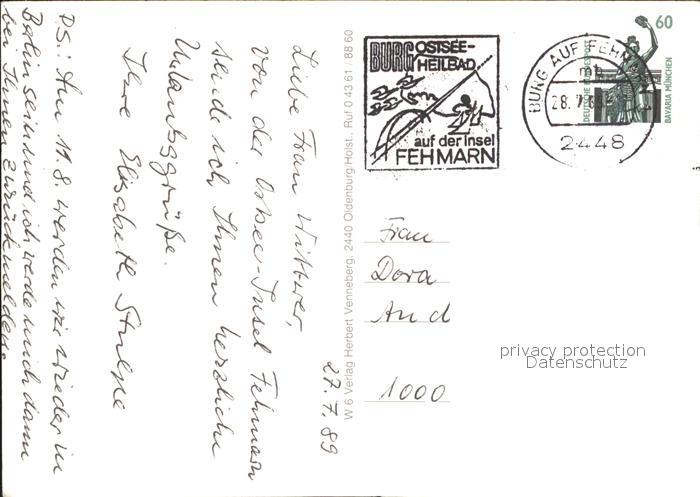 27.7.89
Liebe Frau Wittwer,
von der Ostsee-Insel Fehmarn
sende ich Ihnen herzliche
Urlaubsgrüße.
Ihre Elisabeth
PS.: Am 11.8. werden wir wieder in
Berlin sein und ich werde mich dann
bei Ihnen zurückmelden.
W 6 Verlag Herbert Venneberg, 2440 Oldenburg/Holst., Ruf 0 43 61 / 88 60
BURG OSTSEE-
HEILBAD
auf der Insel
FEHMARN
BURG AUF FEHM
mb
28.7.89
2448
60
DEUTSCHE BUNDESPOST
BAVARIA MÜNCHEN
Frau
Dora
And
1000
privacy protection
Datenschutz